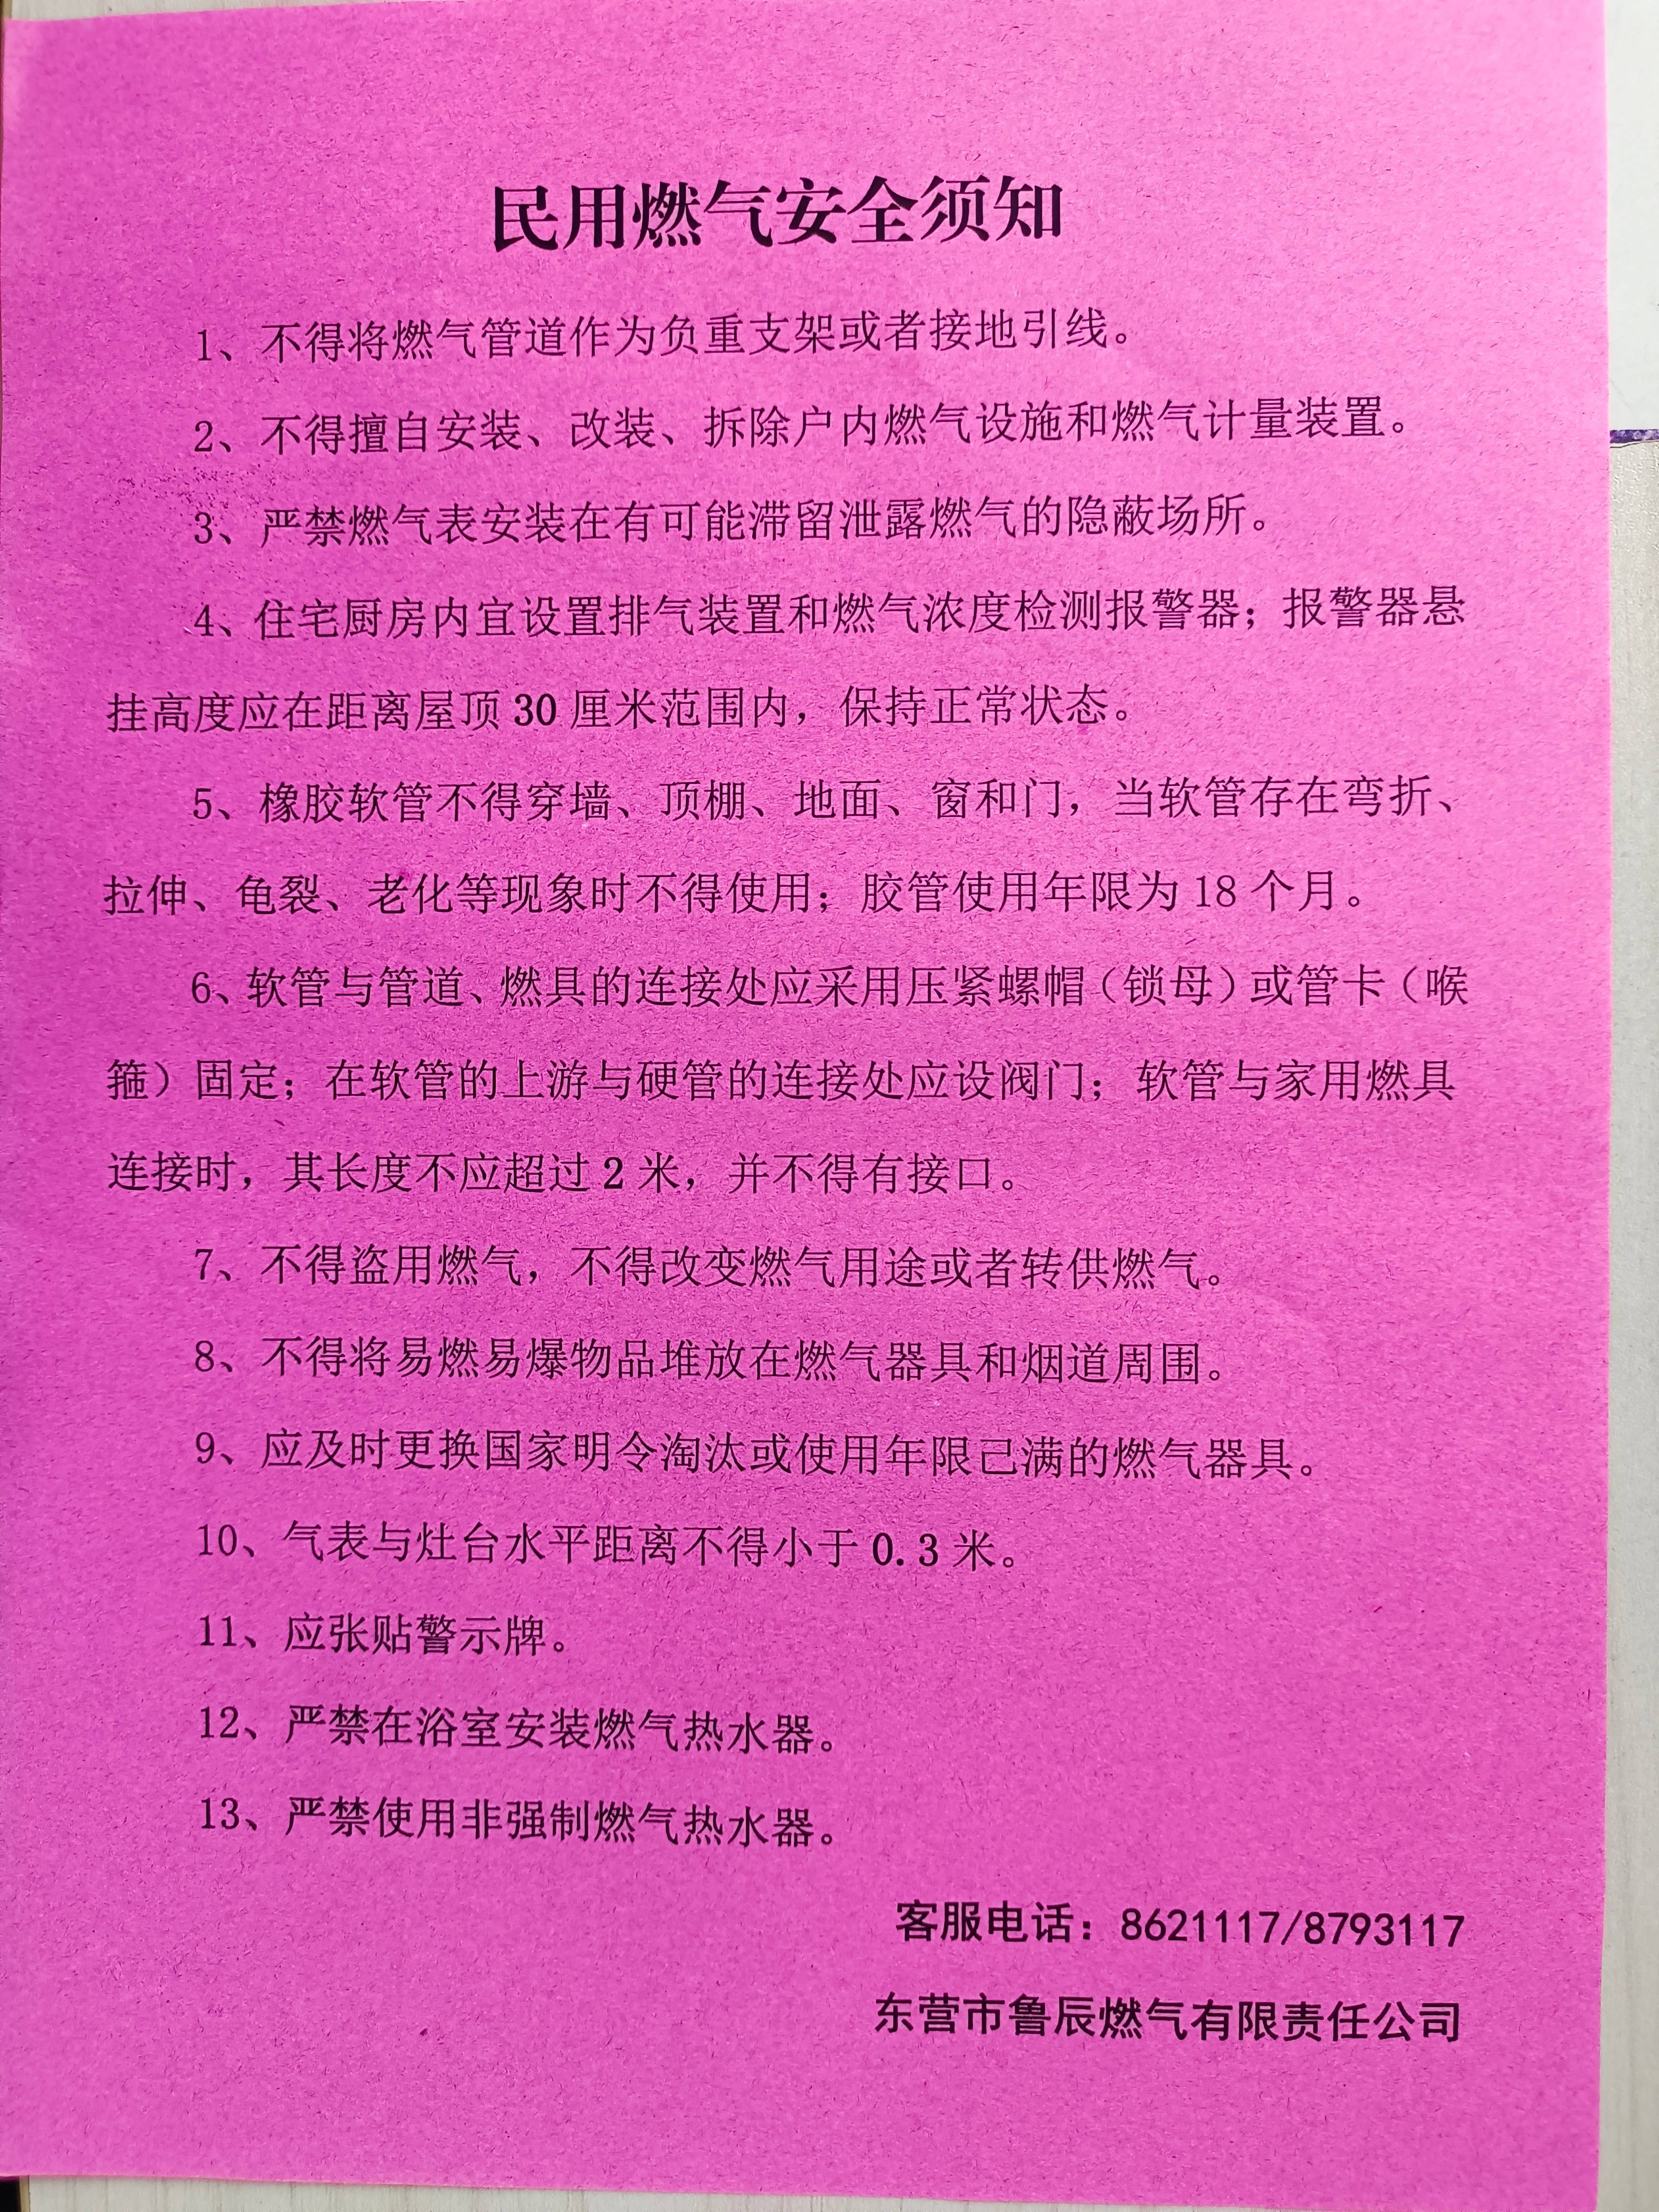 民用燃气安全须知
1、不得将燃气管道作为负重支架或者接地引线。
2、不得擅自安装、改装、拆除户内燃气设施和燃气计量装置。
3、严禁燃气表安装在有可能滞留泄露燃气的隐蔽场所。
4、住宅厨房内宜设置排气装置和燃气浓度检测报警器；报警器悬
挂高度应在距离屋顶30厘米范围内，保持正常状态。
5、橡胶软管不得穿墙、顶棚、地面、窗和门，当软管存在弯折、
拉伸、龟裂、老化等现象时不得使用；胶管使用年限为18个月。
6、软管与管道、燃具的连接处应采用压紧螺帽（锁母）或管卡（喉
箍）固定；在软管的上游与硬管的连接处应设阀门；软管与家用燃具
连接时，其长度不应超过2米，并不得有接口。
7、不得盗用燃气，不得改变燃气用途或者转供燃气。
8、不得将易燃易爆物品堆放在燃气器具和烟道周围。
9、应及时更换国家明令淘汰或使用年限已满的燃气器具。
10、气表与灶台水平距离不得小于0.3米。
11、应张贴警示牌。
12、严禁在浴室安装燃气热水器。
13、严禁使用非强制燃气热水器。
客服电话：8621117/8793117
东营市鲁辰燃气有限责任公司